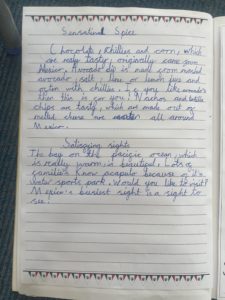 Sensational Spice
Chocolate, chillies and corn, which
are really tasty, originally came from
Mexico. Avocado dip is made from mashed
avocado, salt, lime or lemon juice and
often with chillies. If you like
then this is for you! Nachos and
chips are tasty, which are made out of
melted cheese are eaten all around
Mexico.
Satisfying sights
The bay on the pacific ocean, which
is really warm, is beautiful. Lots of
families know acapulco because of it's
water sports park. Would you like to visit?
Mexico's busiest sight is a sight to
see!